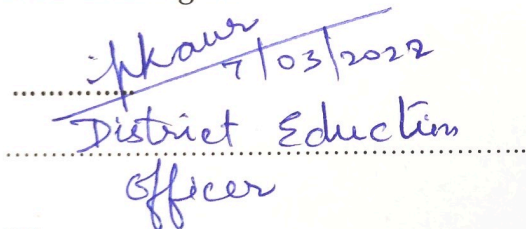 ipkaur
7/03/2022
District Eduction
Officer